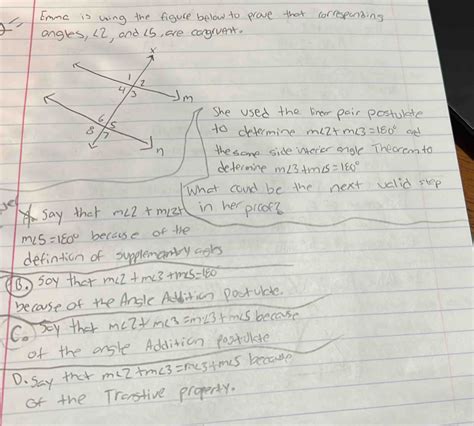 Emma is using the figure below to prove that corresponding
angles, ∠2, and ∠5, are congruent.
x
1 2
4 3
m
6 5
8 7
n
She used the linear pair postulate
to determine m∠2+m∠3=180° and
the same side interior angle Theorem to
determine m∠3+m∠5=180°
What could be the next valid step
in her proof?
A. Say that m∠2 + m∠3+
m∠5=180° because of the
defintion of supplementry angles
B. Say that m∠2+m∠3+m∠5=180°
because of the Angle Addition Postulate
C. Say that m∠2+m∠3=m∠3+m∠5 because
of the angle Addition postulate
D. Say that m∠2+m∠3=m∠3+m∠5 because
of the Transtive property.